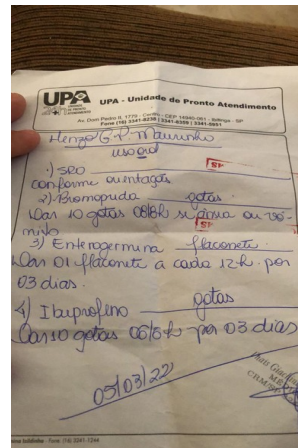 UPA UPA - Unidade de Pronto Atendimento
UNIDADE DE PRONTO ATENDIMENTO
Av. Dom Pedro II, 1779 - Centro - CEP 14940-061 - Ibitinga - SP
Fone (16) 3341-6238 | 3341-6359 | 3341-5651
Henzo G. P. Marinho
uso oral
1) SRO
conforme orientação
2) Bromoprida gotas
Dar 10 gotas 08/8h se náusea ou vô-
mito
3) Enterogermina flaconete
Dar 01 flaconete a cada 12h por
03 dias.
4) Ibuprofeno gotas
Dar 10 gotas 06/6h por 03 dias
05/03/22
Fone (16) 3341-7244